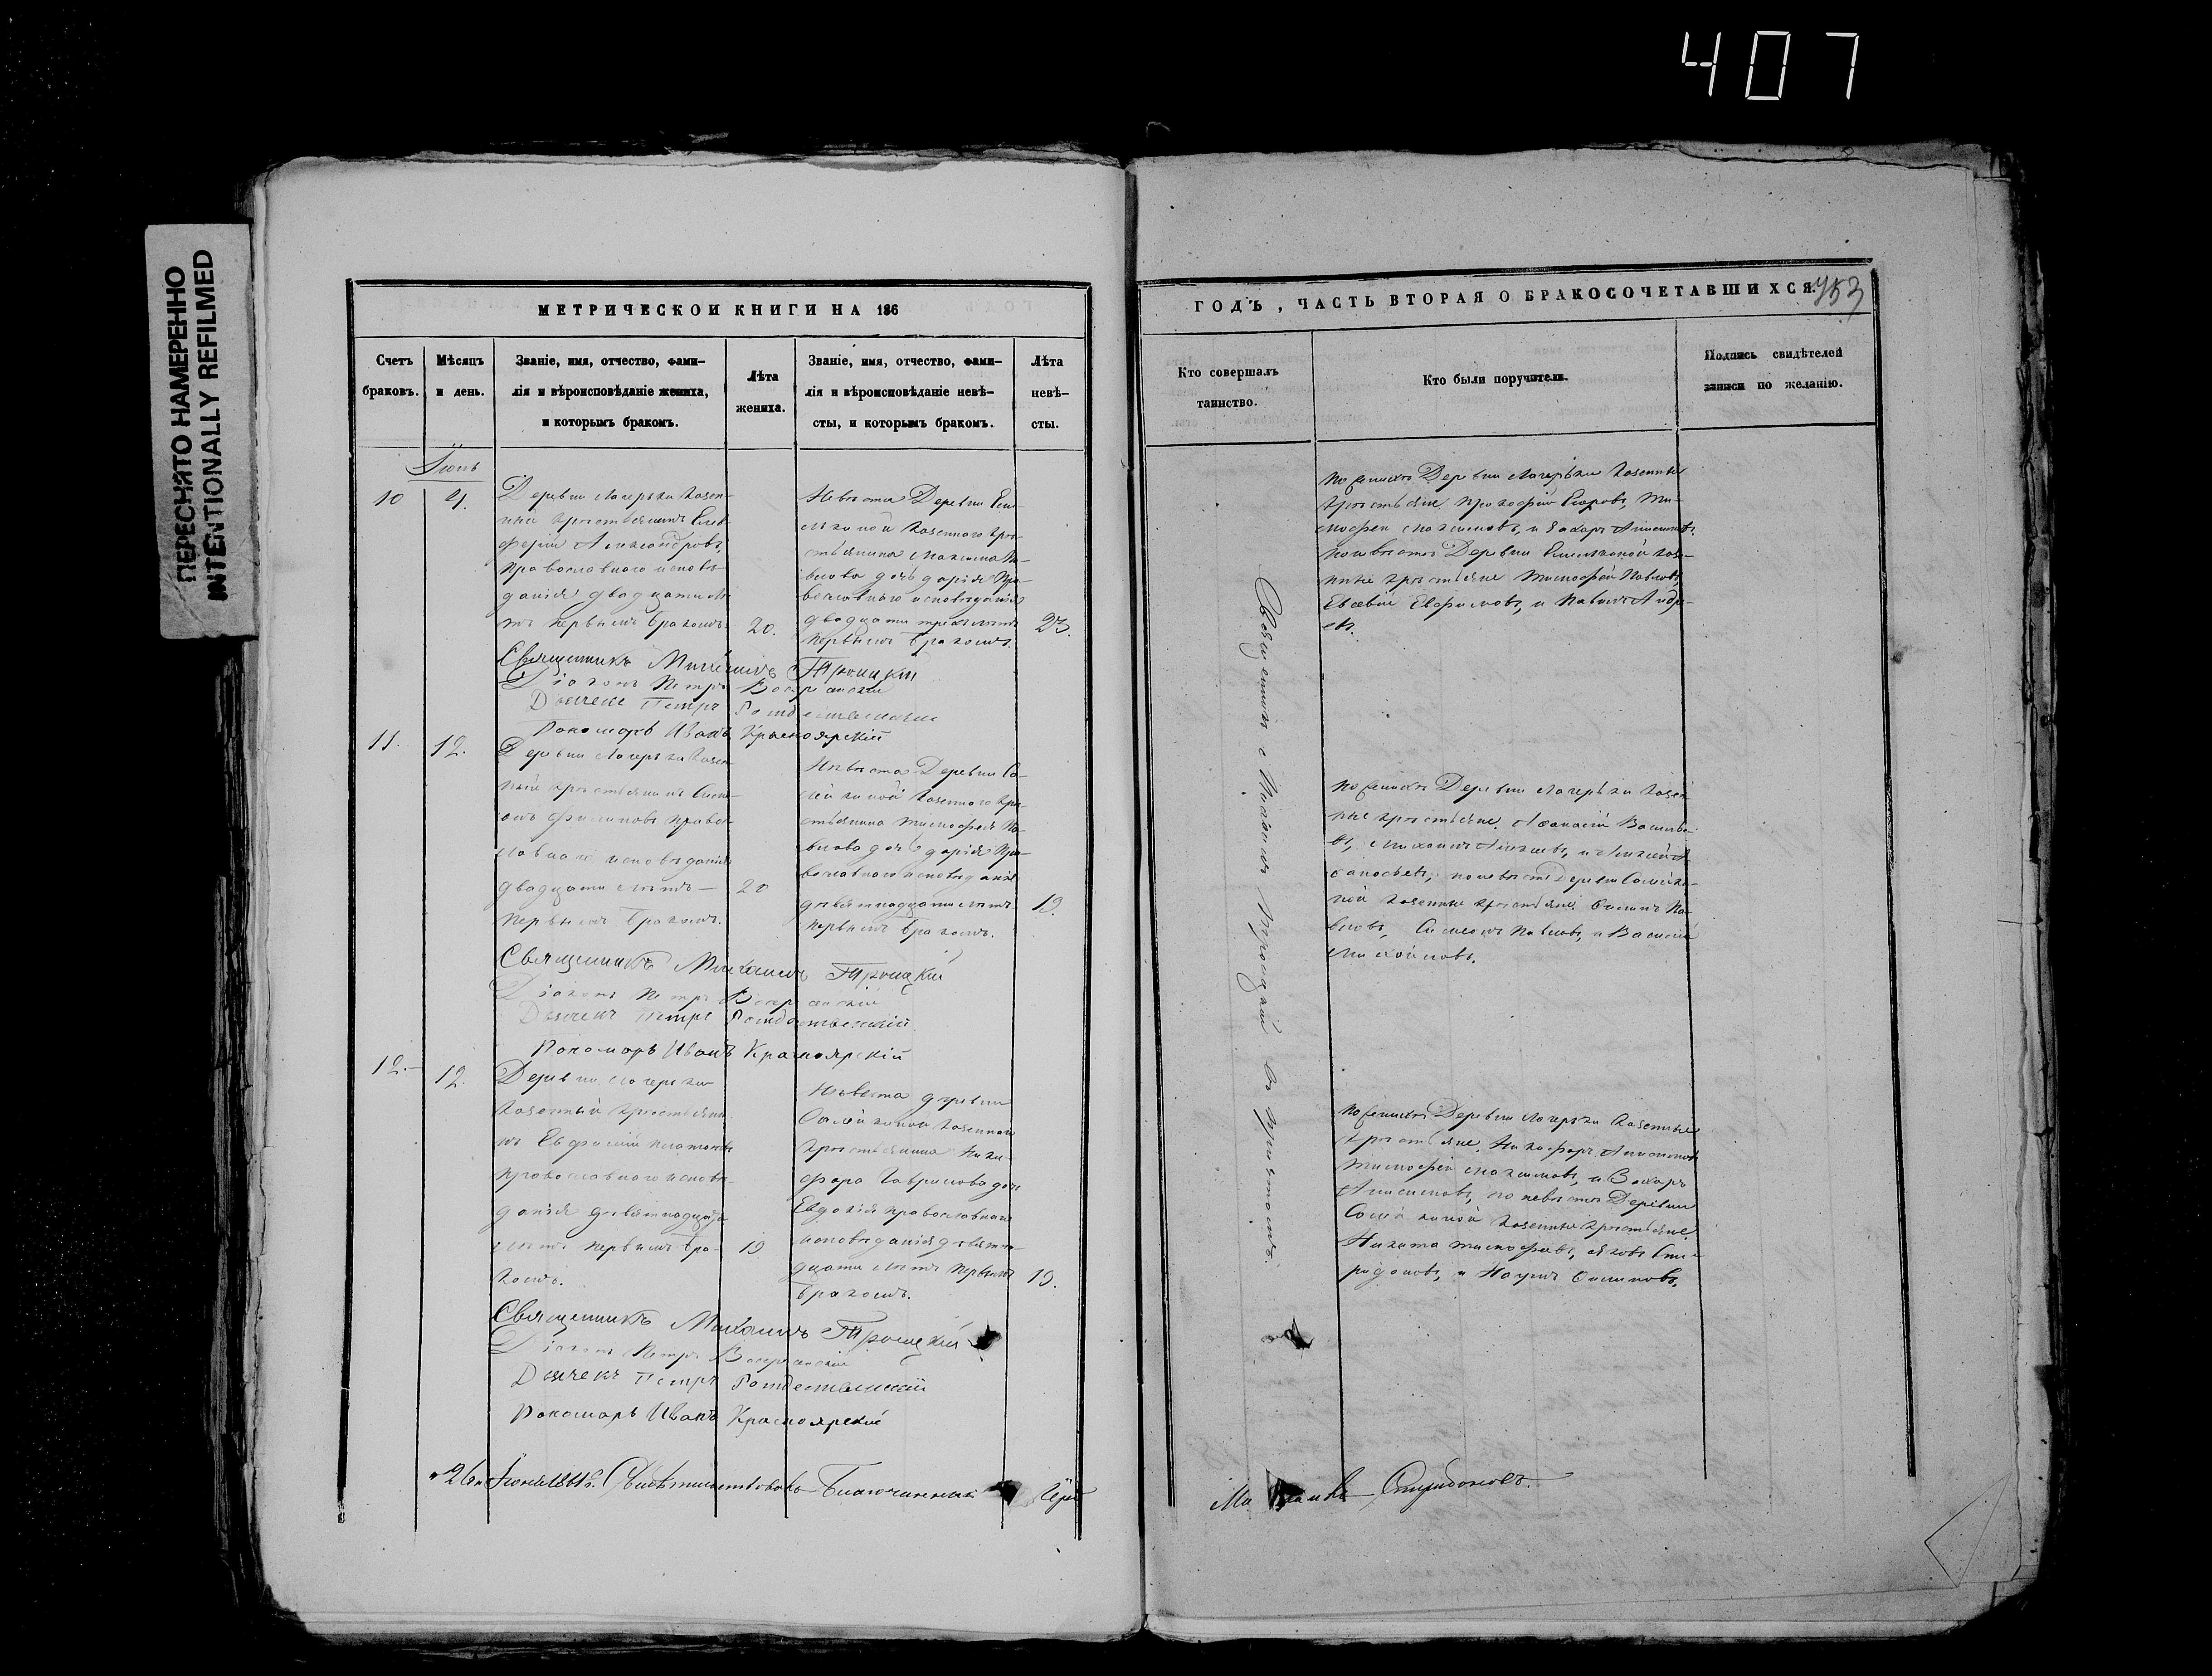 407
ПЕРЕСНЯТО НАМЕРЕННО
INTENTIONALLY REFILMED
МЕТРИЧЕСКОЙ КНИГИ НА 186
Счетъ браковъ.
Мѣсяцъ и день.
Званіе, имя, отчество, фами-
лія и вѣроисповѣданіе жениха,
и которымъ бракомъ.
Лѣта жениха.
Званіе, имя, отчество, фами-
лія и вѣроисповѣданіе невѣ-
сты, и которымъ бракомъ.
Лѣта невѣ-
сты.
10
Деревни казен-
ный крестьянинъ Елев-
ферій Александровъ,
православнаго исповѣ-
данія двадцати лѣ-
тъ первымъ бракомъ.
20.
Невѣста Деревни
казеннаго кре-
стьянина Максима Па-
влова дочь Дарія Пра-
вославнаго исповѣданія
двадцати трехъ лѣтъ
первымъ бракомъ.
23.
Священникъ Михаилъ Троицкій
Діаконъ Петръ
Дьячекъ Петръ Рождественскій
Пономарь Иванъ Красноярскій
11.
12.
Деревни казен-
ный крестьянинъ Симе-
онъ Филиповъ право-
славнаго исповѣданія
двадцати лѣтъ —
первымъ бракомъ.
20
Невѣста Деревни Со-
казеннаго кре-
стьянина Тимофея Па-
влова дочь Дарія Пра-
вославнаго исповѣданія
девятнадцати лѣтъ
первымъ бракомъ.
19.
Священникъ Михаилъ Троицкій
Діаконъ Петръ
Дьячекъ Петръ Рождественскій
Пономарь Иванъ Красноярскій
12.
12.
Деревни
казенный крестьяни-
нъ Евфимій Платоновъ
православнаго исповѣ-
данія девятнадцати
лѣтъ первымъ бра-
комъ.
19
Невѣста деревни
казеннаго
крестьянина Ники-
фора Гаврилова дочь
Евдокія православнаго
исповѣданія девятна-
дцати лѣтъ первымъ
бракомъ.
19.
Священникъ Михаилъ Троицкій
Діаконъ Петръ
Дьячекъ Петръ Рождественскій
Пономарь Иванъ Красноярскій
Свидѣтельствовалъ Благочинный
ГОДЪ, ЧАСТЬ ВТОРАЯ О БРАКОСОЧЕТАВШИХСЯ.
353
Кто совершалъ таинство.
Кто были поручители.
Подпись свидѣтелей
записи по желанію.
Священникъ Михаилъ Троицкій съ причтомъ.
По женихѣ Деревни казенные
крестьяне Прокофій Егоровъ, Ти-
мофей Максимовъ, и Захаръ Анисимовъ,
по невѣстѣ Деревни казе-
нные крестьяне Тимофей Павловъ,
Евсевій Евфимовъ, и Павелъ Андре-
евъ.
По женихѣ Деревни казен-
ные крестьяне. Афанасій Василье-
въ, Михаилъ Алексѣевъ, и Алексѣй А-
фанасьевъ, по невѣстѣ Деревни
казенные крестьяне Па-
вловъ, Симеонъ Павловъ, и Василій
Михайловъ.
По женихѣ Деревни казенные
крестьяне. Никифоръ Анисимовъ
Тимофей Максимовъ, и Захаръ
Анисимовъ, по невѣстѣ Деревни
казенные крестьяне
Никита Тимофеевъ, Яковъ Спи-
ридоновъ, и Наумъ Осиповъ.
Спиридоновъ.